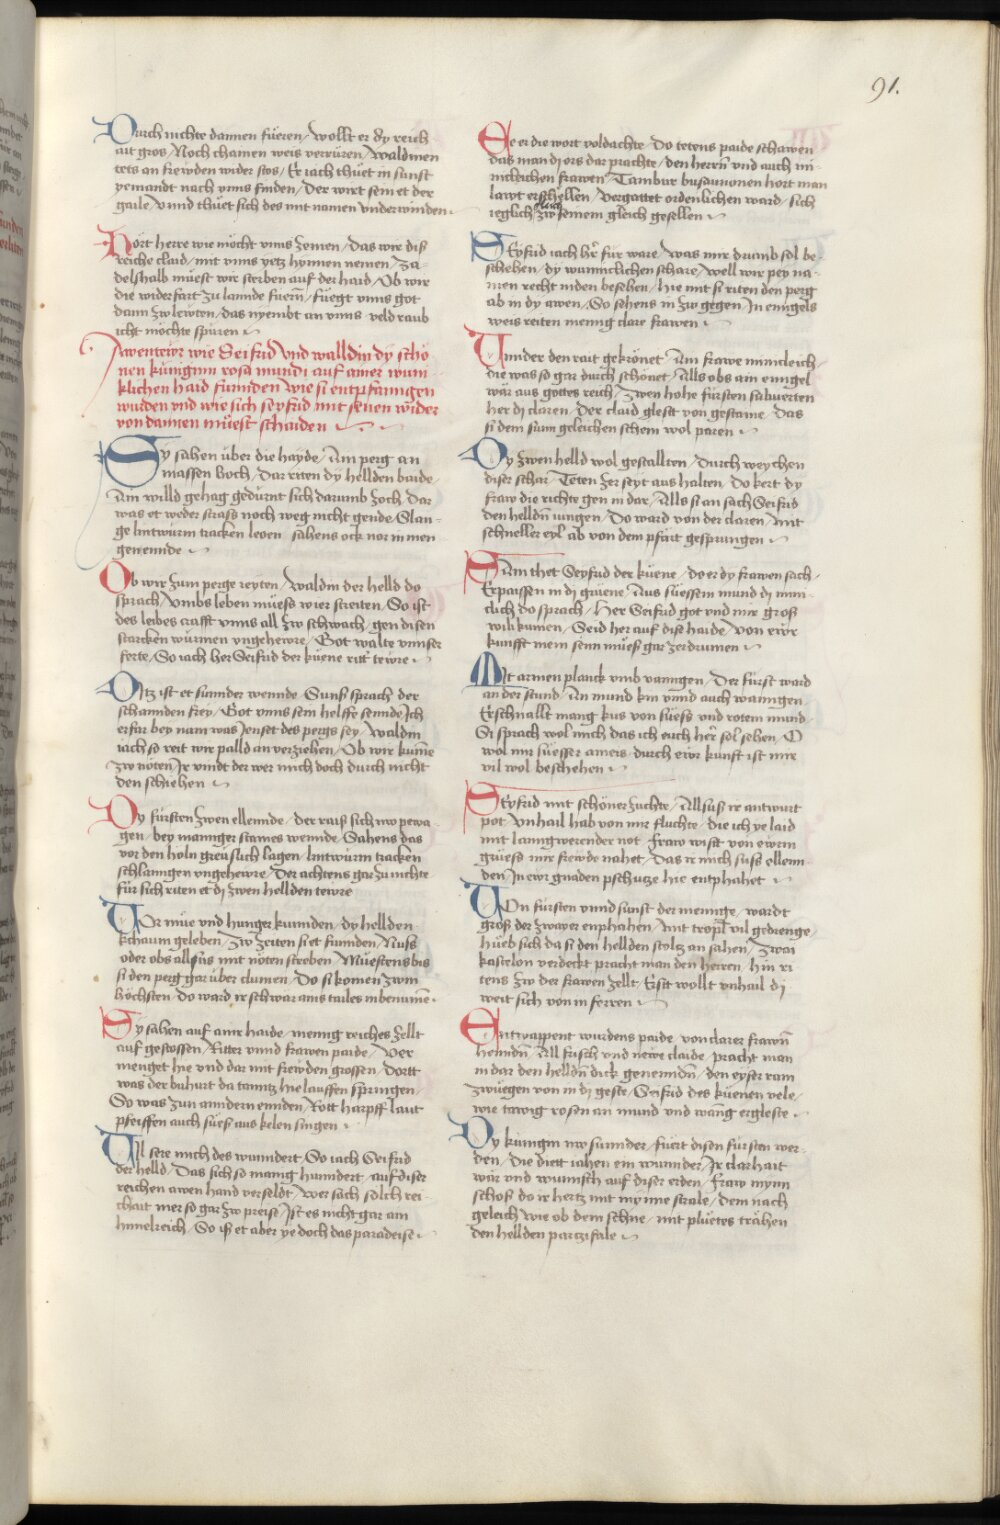 91.
Durch nichte dannen füeren / Wollt er dy reich
ait gros / Noch chamen weis verrüren / Waldmen
tets an frewden wider stos / Er iach thüet in sunst
yemandt nach vnns finden / Der wirt sein et der
gaile / Vnnd thüet sich des mit namen vnderwinden
Hört herre wie möcht vnns zemen / Das wir diß
reiche claid / mit vnns yetz hynnen nemen / Za
delshalb müest wir sterben auf der haid / Ob wir
die widerfart zu lannde fuern / füegt vnns got
dann zw lewten / das nyembt an vnns veld raub
icht möchte spüren
Awentewr wie Seifrid vnd walldin dy schö
nen künigin rosa mundi auf ainer wun
klichen haid funnden wie si entpfanngen
wurden vnd wie sich seyfrid mit seuen wider
von dannen müest schaiden
Sy sahen über die hayde / Ain perg an
massen hoch / Dar riten dy hellden baide
Ain willd gehag gedürnt sich darumb zoch / Dar
was et weder strass noch weg nicht gende / Slan
ge lintwürm tracken leoen / sahens ock nor in nen
genennde
Ob wir zum perge reyten / Waldin der helld do
sprach / Vmbs leben müess wier streiten / So ist
des leibes crafft vnns all zw schwach / gen disen
starcken würmen vngehewre / Got walte vnnser
ferte / So iach her Seifrid der küene ritter tewre
Ditz ist et sunnder wennde / Sunss sprach der
schannden frey / Got vnns sein helffe sennde Ich
erfar bey nam was Jenset des pergs sey / Waldin
iach so reit wir palld an verziehen / Ob wir kume
zw nöten Jr vindt der wer mich doch durch nicht
den schiehen
Dy fürsten zwen ellennde / der raiß sich nyo pewa
gen / bey manniger staines wennde / Sahens das
vor den holn greuslich lagen / lintwürm tracken
schlanngen vngehewre / Der achtens gar zu nichte
für sich riten et dj zwen hellden tewre
Vor müe vnd hunger kunnden / dy hellden
kchaum geleben / Zw zeiten si et funnden / Nuss
oder obs allsus mit nöten streben / Müestens bis
si den perg gar über clumen / Do si komen zum
höchsten / do ward ir schwar ains tailes inbenumen
Sy sahen auf ainr haide / menig reiches zellt
auf gestossen / Ritter vnnd frawen paide / Ver
menget hie vnd dar mit frewden grossen / Dortt
was der buhurt da tanntz hie lauffen springen
So was zun anndern ennden / Rott harpff laut
pfeiffen auch süess aus kelen singen
All sere mich des wunndert / So iach Seifrid
der helld / Das sich so manig hunndert / auf diser
reichen awen hand verseldt / Wer sach solch rei
chait mer so gar zw preise / Ist es nicht gar ain
himelreich / So iss et aber ye doch das paradeise
Ee er die wort voldachte / Do tetens paide schawen
das man dj ors dar prachte / den herrn vnd auch mi
nickeichen frawen / Tambur busaunnen hort man
lawt erschellen / Vergattet ordenlichen ward / sich
ieglich zw seinem gleich gesellen
Seyfrid iach hr für ware / Was mir drumb sol be
schehen / dy wunniclichen schare / Well wir pey na
men recht inden besehen / Hie mit si riten den perg
ab in dy awen / So sehens in zw gegen / In enngels
weis reiten mennig clare frawen
Vnnder den rait gekrönet / Ain frawe minncleich
die was so gar durch schönet / Alls obs ain enngel
wär aus gottes reich / Zwen hohe fürsten salwierten
her dj claren / Der claid gleset von gestaine / Das
si dem sunn geleichen schein wol paren
Dy zwen helld wol gestallten / Durch weychen
diser schar / Teten zer seyt aus halten / Do kert dy
fraw die richte gen in dar / Alls si an sach Seifrid
den helldn iungen / Do ward von der claren / mit
schneller eyl ab von dem pfärt gesprungen
Sam thet Seyfrid der küene / do er dy frawen sach
Erpaissen in dj grüene / Aus süessem mund dj minn
clich do sprach / Her Seifrid got vnd mir gross
wilikumen / Seid her auf dise haide / Von ewr
kunfft mein senn müess gar zerdrumen
Mit armen planck vmb vanngen / Der fürst ward
an der stund / An mund kin vnnd auch wanngen
Erschnallt mang kus von süess vnd rotem mund
Si sprach wol mich das ich euch her sol sehen / O
wol mir süesser ameis / durch ewr kunft ist mir
vil wol beschehen
Seyfrid mit schöner zuchte / Allsus ir antwurt
pot / Vnhail hab von mir fluchte / die ich ye laid
mit lanngwerender not / Fraw wisst von ewrm
grüess mir frewde nahet / Das ir mich suss ellenn
den / In ewr gnaden pschutze hie entphahet
Von fürsten vnnd sunst der mennge / wardt
gross der zwayer enphahen / Mit tropl vil gedrenge
hüeb sich da si den hellden stoltz an sahen / Zwai
kastelon verdeckt pracht man den herren / Hin ri
tens zw der frawen zellt / Er sit wollt vnhail dj
weit sich von in ferren
Entwappent wurdens paide / von clarer frawn
henndn / All frisch vnd newe claide / pracht man
in dar den helldn dick genenndn / den eyser ram
zwüegen von in dj geste / Seifrid des küenen vele
wie tawig rosen an mund vnd wang ergleste
Dy künigin nw sunnder / füert disen fürsten wer
den / Die diett iahen ein wunnder / Ir clarhait
wär vnd wunnsch auf diser erden / Fraw mynn
schoss do ir hertz mit mynne strale / dem nach
geleich wie ob dem schne / mit pluetes trähen
den hellden partzifale